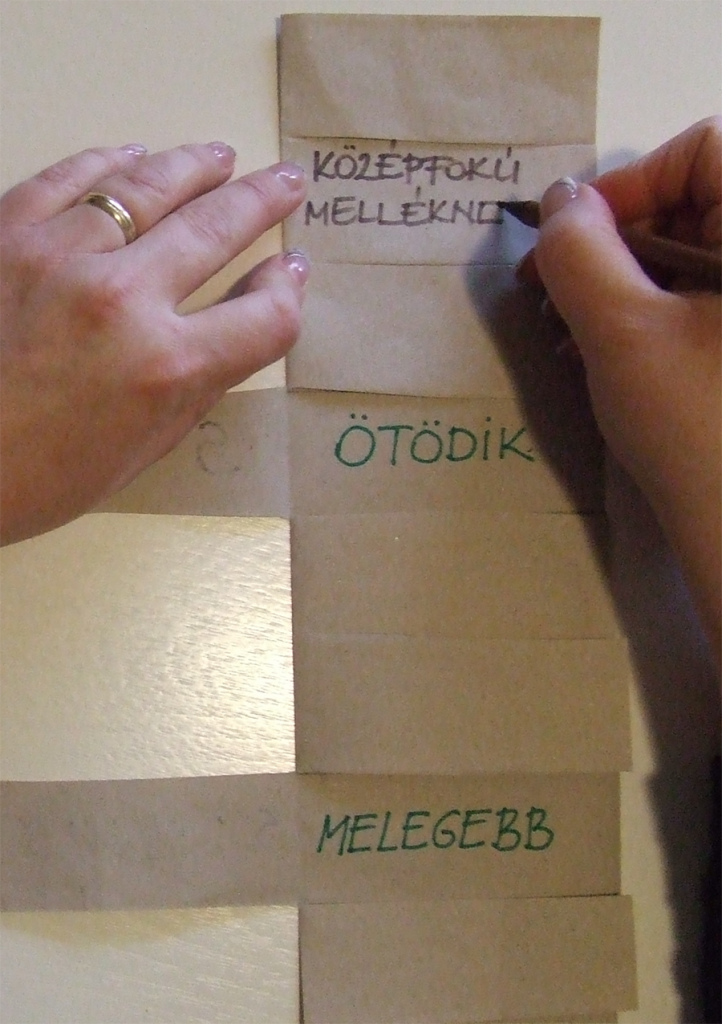 KÖZÉPFOKÚ
MELLÉKNE
ÖTÖDIK
MELEGEBB